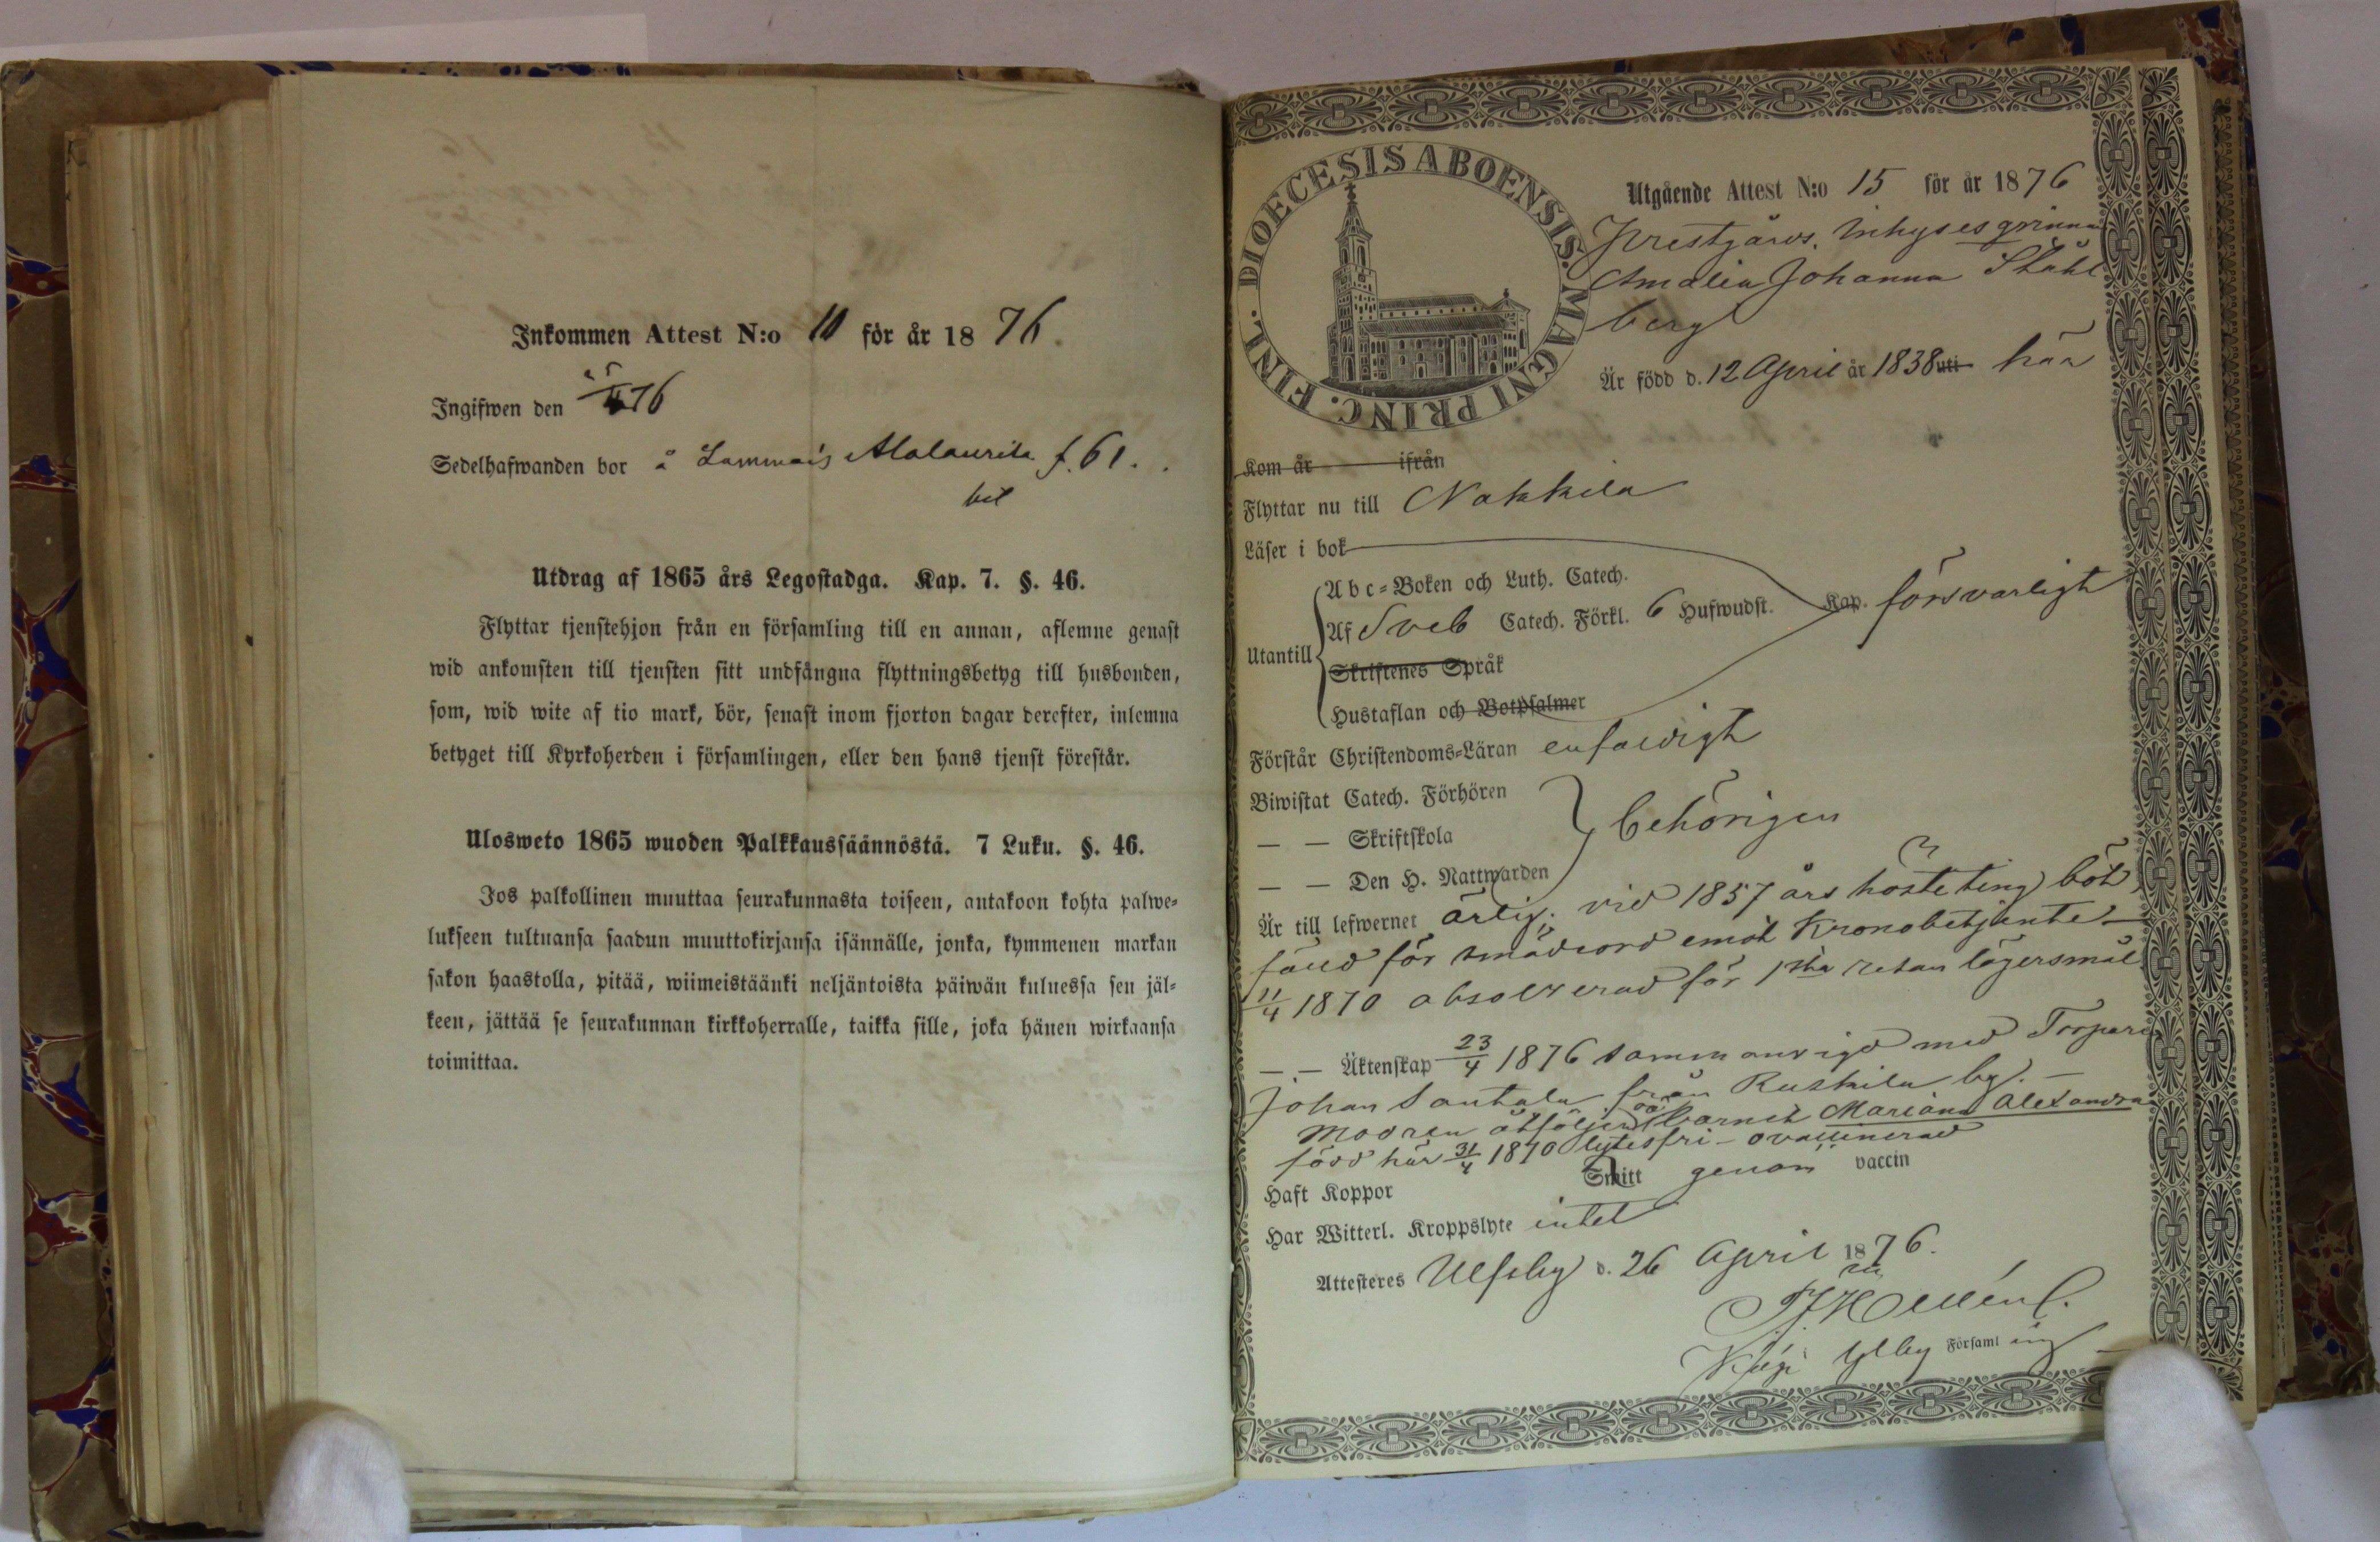 Inkommen Attest N:o 10 för år 1876.
Ingifwen den 76
Sedelhafwanden bor å Lammais Alalaurila f. 61.
Utdrag af 1865 års Legostadga. Kap. 7. §. 46.
Flyttar tjenstehjon från en församling till en annan, aflemne genast
wid ankomsten till tjensten sitt undfångna flyttningsbetyg till husbonden,
som, wid wite af tio mark, bör, senast inom fjorton dagar derefter, inlemna
betyget till Kyrkoherden i församlingen, eller den hans tjenst förestår.
Ulosweto 1865 wuoden Palkkaussäännöstä. 7 Luku. §. 46.
Jos palkollinen muuttaa seurakunnasta toiseen, antakoon kohta palwe-
lukseen tultuansa saadun muuttokirjansa isännälle, jonka, kymmenen markan
sakon haastolla, pitää, wiimeistäänki neljäntoista päiwän kuluessa sen jäl-
keen, jättää se seurakunnan kirkkoherralle, taikka sille, joka hänen wirkaansa
toimittaa.
DIOECESIS ABOENSIS. MAGNI PRINC. FINL.
Utgående Attest N:o 15 för år 1876
Prestgårds. Inhyses qvinna
Amalia Johanna Ståhl
berg
Är född d. 12 April år 1838 uti här
Kom år ifrån
Flyttar nu till Nakkila
Läser i bok
Utantill
Abc-Boken och Luth. Catech.
Af Sveb Catech. Förkl. 6 Hufwudst. Kap. försvarligt
Skriftenes Språk
Hustaflan och Botpsalmer
Förstår Christendoms-Läran enfaldigt
Biwistat Catech. Förhören
— — Skriftskola behörigen
— — Den H. Nattwarden
Är till lefwernet ärlig; vid 1857 års hösteting böt
fälld för smädeord emot Kronobetjente
11/4 1870 absolverad för 1sta resan lägersmål
— — Äktenskap 23/4 1876 sammanvigd med Torparen
Johan Santala från Ruskila by.—
Modren åtföljer oä barnet Mariana Alexandra
född här 31/4 1870 lytesfri - ovaccinerad
Haft Koppor Smitt genom vaccin
Har Witterl. Kroppslyte intet
Attesteres Ulfsby d. 26 April 1876.
Ulby Församl ing